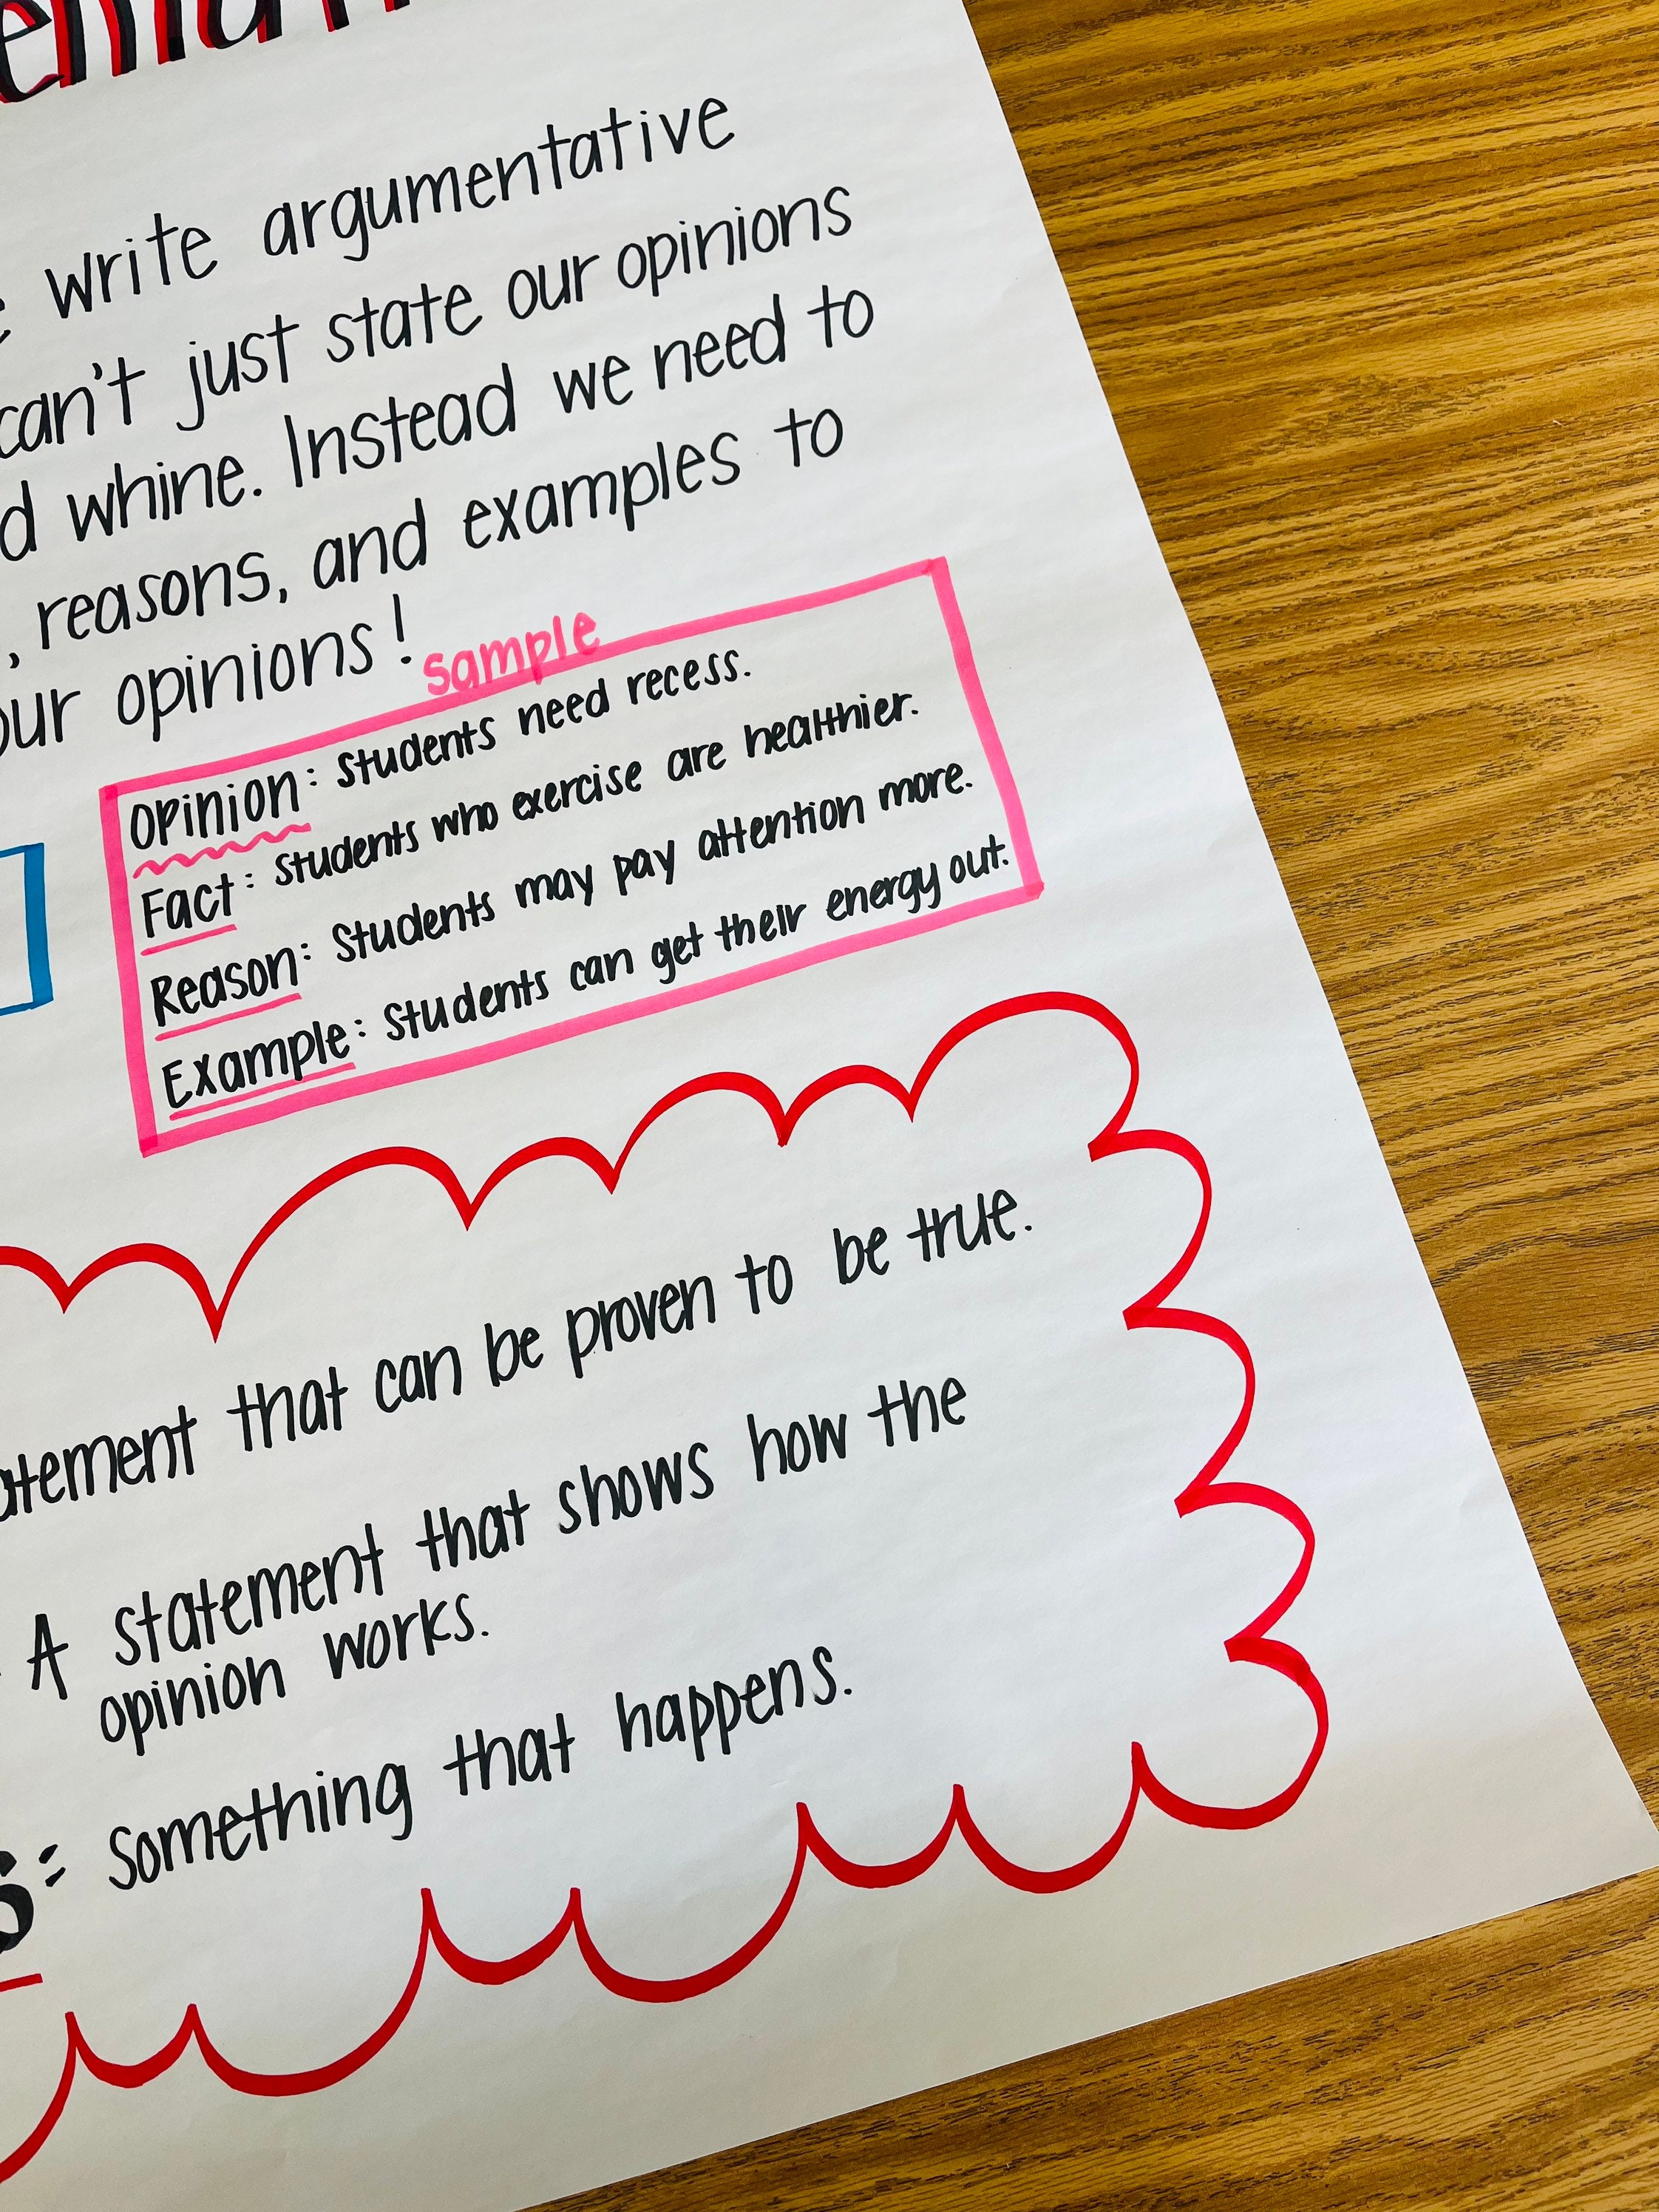 write argumentative
can't just state our opinions
whine. Instead we need to
, reasons, and examples to
opinions!
sample
Opinion: Students need recess.
Fact: Students who exercise are healthier.
Reason: Students may pay attention more.
Example: Students can get their energy out.
that can be proven to be true.
A statement that shows how the
opinion works.
= Something that happens.